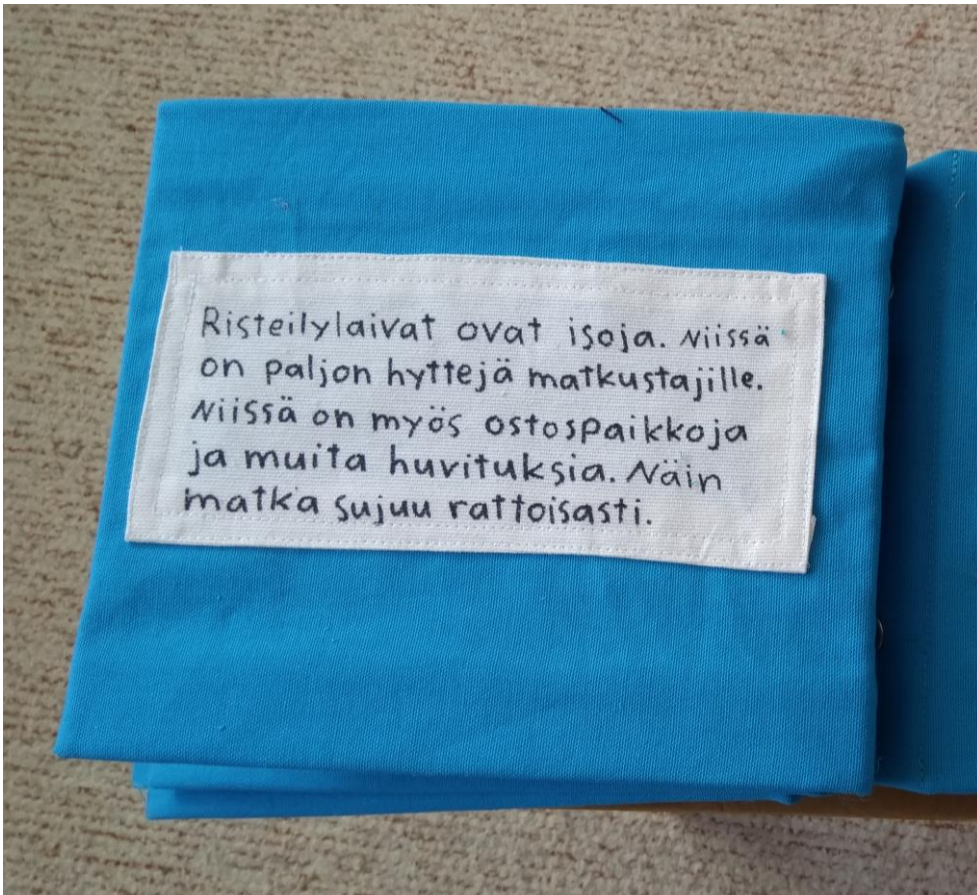 Risteilylaivat ovat isoja. Niissä
on paljon hyttejä matkustajille.
Niissä on myös ostospaikkoja
ja muita huvituksia. Näin
matka sujuu rattoisasti.